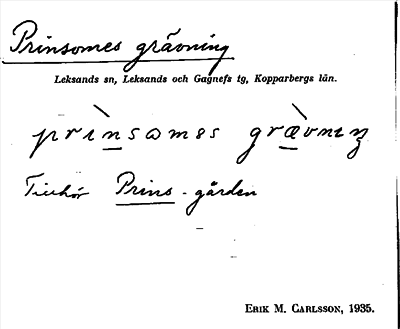 Prinsomes grävning
Leksands sn, Leksands och Gagnefs tg, Kopparbergs län.
prìn̲sωmes græ̲̀vnıŋ
Tillhör Prins-gården
ERIK M. CARLSSON, 1935.